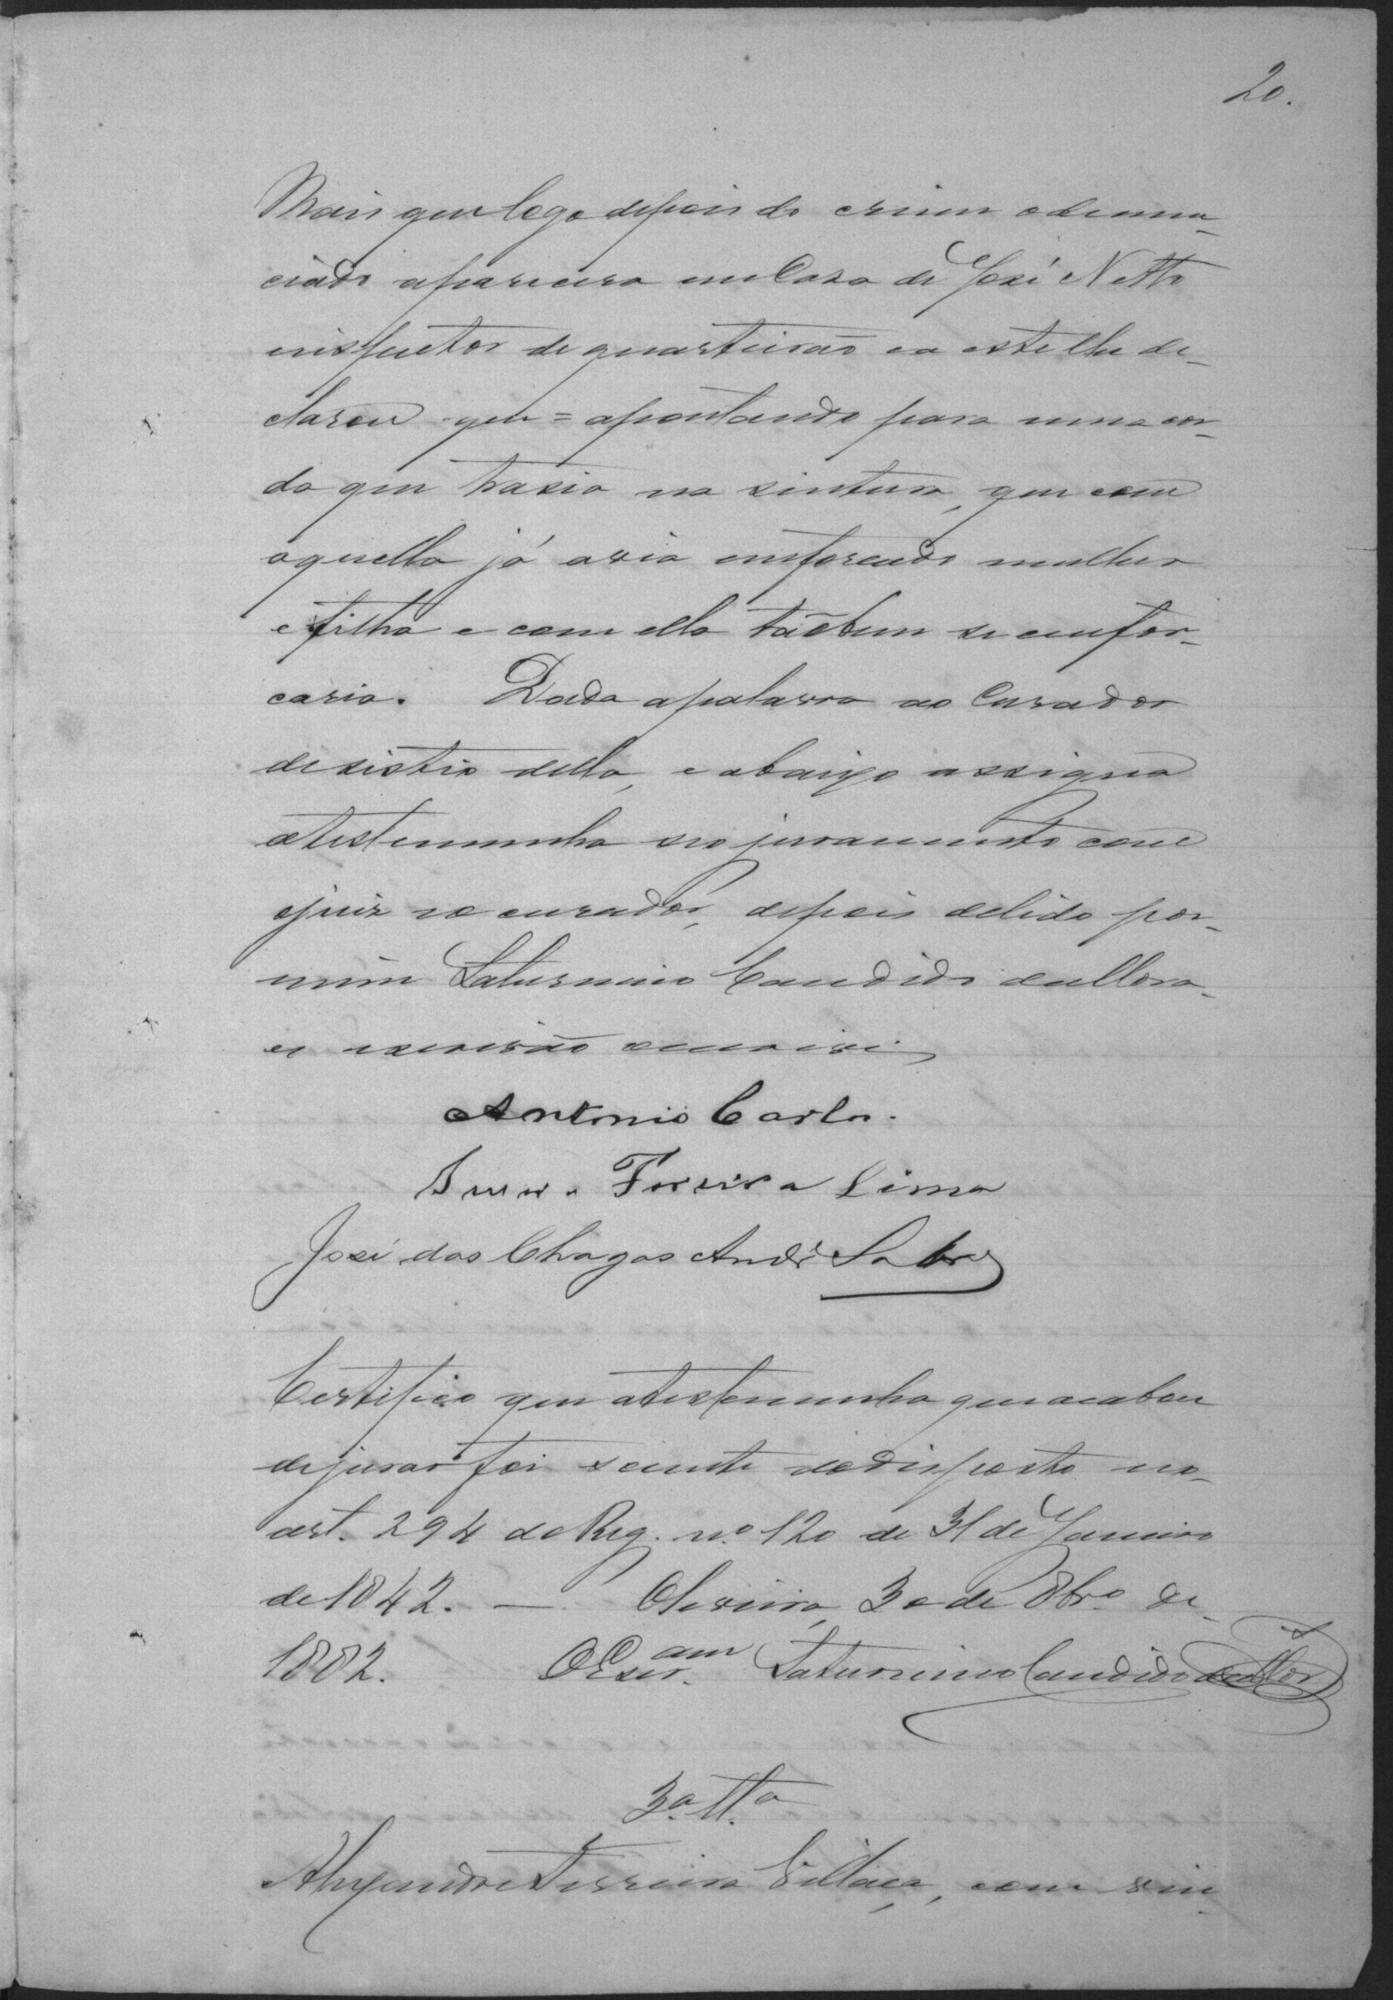 20.
Mais que logo depois do crime o denun-
ciado aparecera em Casa de José Netto
inspector de quarteirão e a este lhe de-
clarou que = apontando para uma cor-
da que trasia na sintura, que com
aquella já avia emforcado mulher
e filha e com ella tãobem se emfor-
caria. Dada a palavra ao Curador
desistio della, e abaixo assigna
a testemunha seo juramento com o
juiz e o curador, depois de lido por
mim Saturnino Candido de
e escrivão o escrivi
Antonio Carlos.
Ferreira Lima
José das Chagas Andrᵉ
Certifico que a testemunha que acabou
de jurar foi sciente do disposto no
art. 294 do Reg. nº 120 de 31 de Janeiro
de 1842. — Oliveira, 30 de 8brº de
1882. O Escram Saturnino Candido
3ª Ttª
Alexandre Ferreira Villaça, com vin